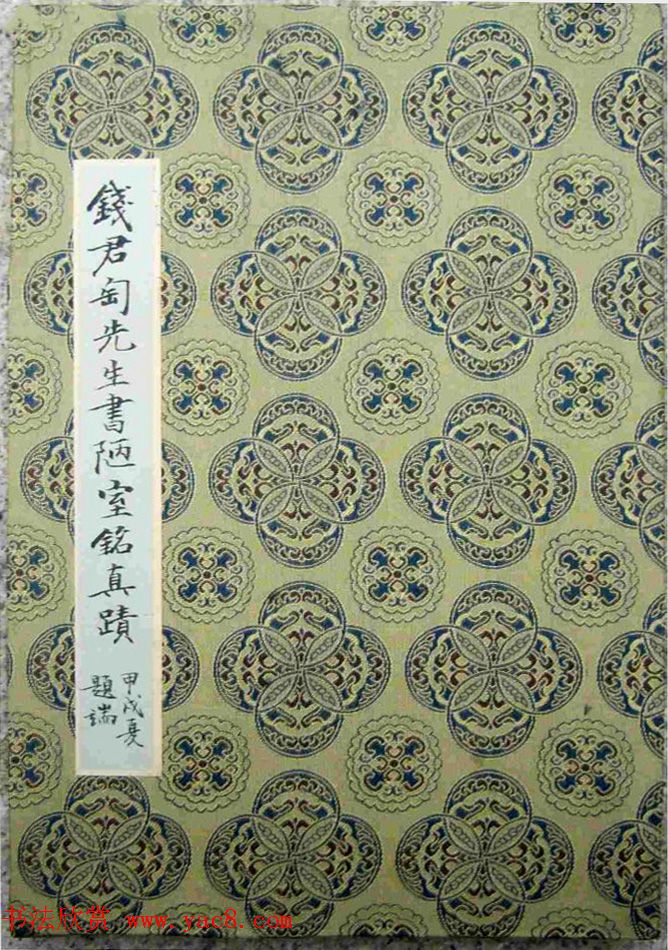 錢君匋先生書陋室銘真蹟
甲戌夏
題端
书法欣赏 www.yac8.com